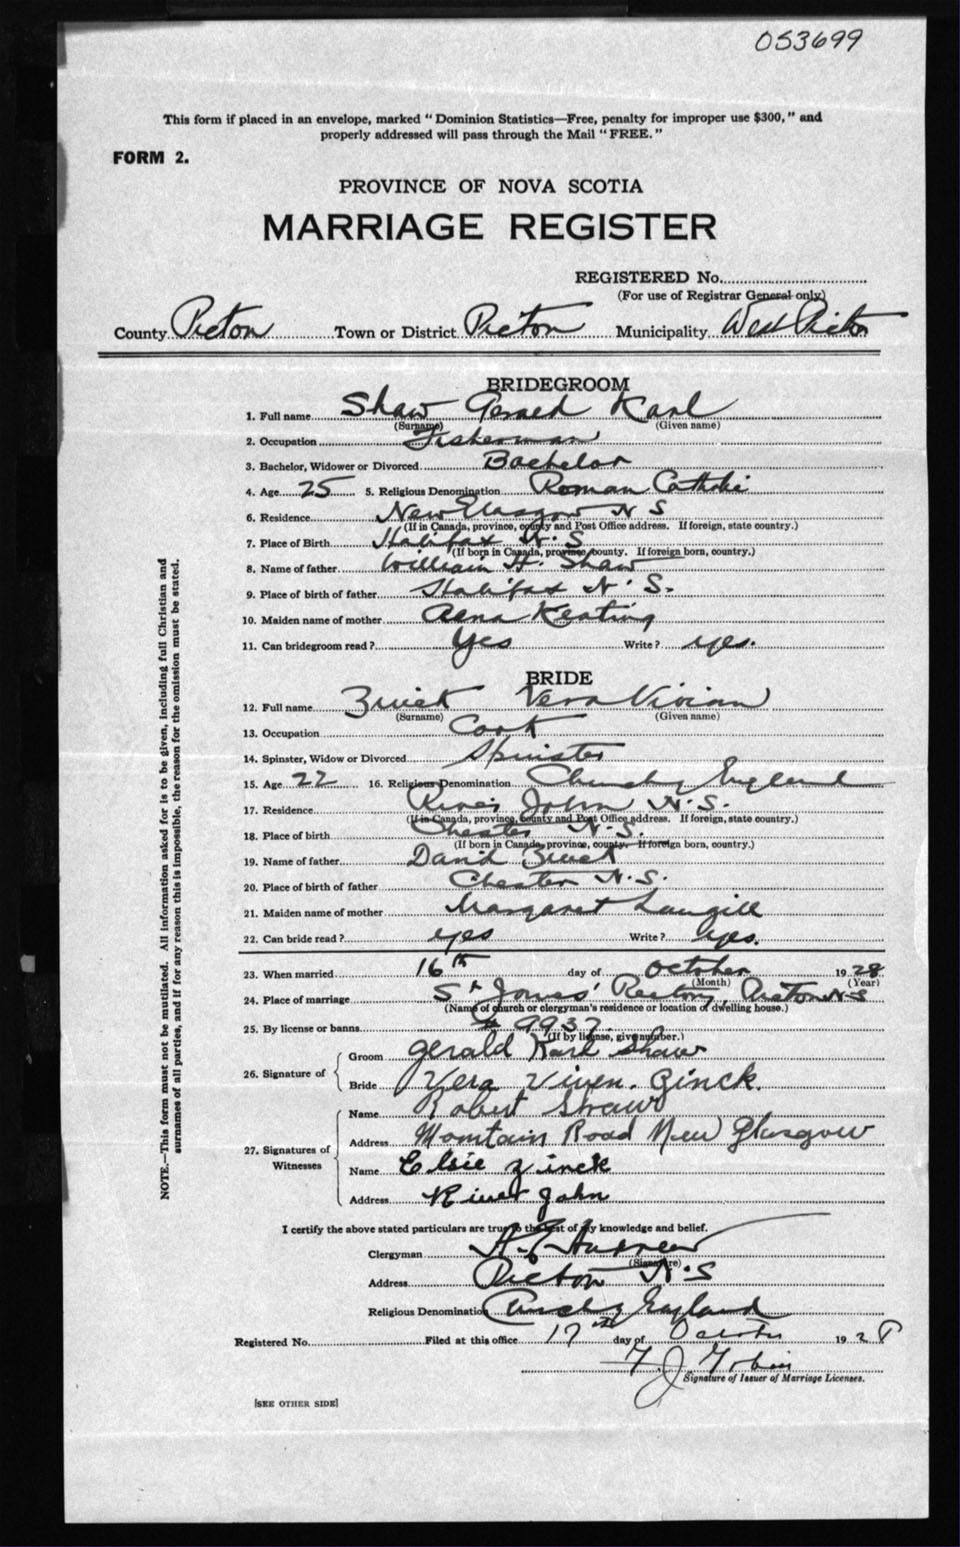 053699
This form if placed in an envelope, marked "Dominion Statistics—Free, penalty for improper use $300," and
properly addressed will pass through the Mail "FREE."
FORM 2.
PROVINCE OF NOVA SCOTIA
MARRIAGE REGISTER
REGISTERED No.
(For use of Registrar General only)
County Pictou Town or District Pictou Municipality West Pictou
BRIDEGROOM
1. Full name Shaw Gerald Karl
(Surname) (Given name)
2. Occupation Fisherman
3. Bachelor, Widower or Divorced Bachelor
4. Age 25 5. Religious Denomination Roman Catholic
6. Residence New Glasgow N S
(If in Canada, province, county and Post Office address. If foreign, state country.)
7. Place of Birth Halifax N. S
(If born in Canada, province, county. If foreign born, country.)
8. Name of father William H. Shaw
9. Place of birth of father Halifax N. S.
10. Maiden name of mother Keating
11. Can bridegroom read? Yes Write? yes.
BRIDE
12. Full name Zinck Vera Vivian
(Surname) (Given name)
13. Occupation Cook
14. Spinster, Widow or Divorced Spinster
15. Age 22 16. Religious Denomination Church of England
17. Residence River John N. S.
(If in Canada, province, county and Post Office address. If foreign, state country.)
18. Place of birth Chester N. S.
(If born in Canada, province, county. If foreign born, country.)
19. Name of father David Zinck
20. Place of birth of father Chester N. S.
21. Maiden name of mother Margaret Langill
22. Can bride read? yes Write? yes.
23. When married 16th day of October 1928
(Month) (Year)
24. Place of marriage St James' Rectory, Pictou N S
(Name of church or clergyman's residence or location of dwelling house.)
25. By license or banns # 9937
(If by license, give number.)
26. Signature of
Groom Gerald Karl Shaw
Bride Vera Viven. Zinck.
27. Signatures of Witnesses
Name Robert Shaw
Address Mountain Road New Glasgow
Name Elsie Zinck
Address River John
I certify the above stated particulars are true to the best of my knowledge and belief.
Clergyman A. E. Andrew
(Signature)
Address Pictou N. S
Religious Denomination Church of England
Registered No. Filed at this office 17th day of October 1928
Signature of Issuer of Marriage Licenses.
[SEE OTHER SIDE]
NOTE.—This form must not be mutilated. All information asked for is to be given, including full Christian and
surnames of all parties, and if for any reason this is impossible, the reason for the omission must be stated.